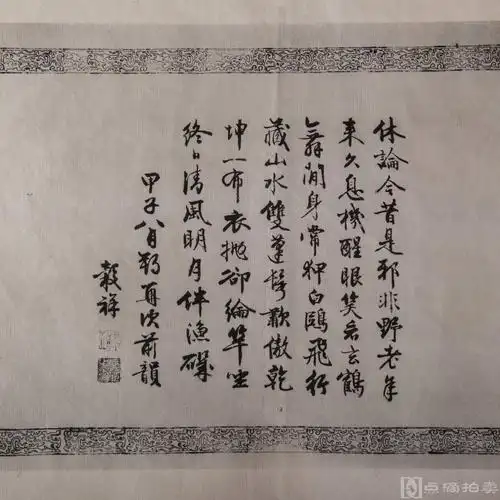 休論今昔是耶非野老年
來久息機醒眼笑看玄鶴
舞閒身常狎白鷗飛行
藏山水雙蓬鬢歌傲乾
坤一布衣拋卻綸竿坐
終日清風明月伴漁磯
甲子八月朔再次前韻
穀祥
点滴拍卖